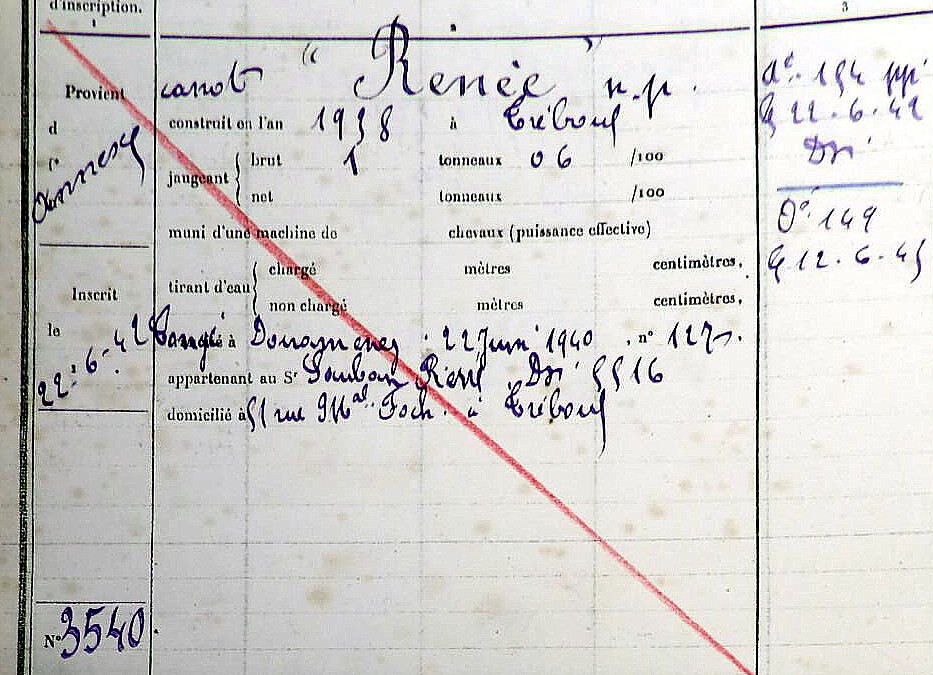 d'inscription.
1
3
Provient
d
l'
Annexe
Inscrit
le
22.6.42
N° 3540.
canot " Renée " n.p.
construit en l'an 1938 à Tréboul
jaugeant
brut 1 tonneaux 06 /100
net tonneaux /100
muni d'une machine de chevaux (puissance effective)
tirant d'eau
chargé mètres centimètres,
non chargé mètres centimètres,
à Douarnenez 22 Juin 1940, n° 127
appartenant au Sr René Dni 5516
domicilié à 51 rue Mal Foch à Tréboul
do. 154 pp.
G 22.6.42
Dni
Do. 149
G 12.6.45